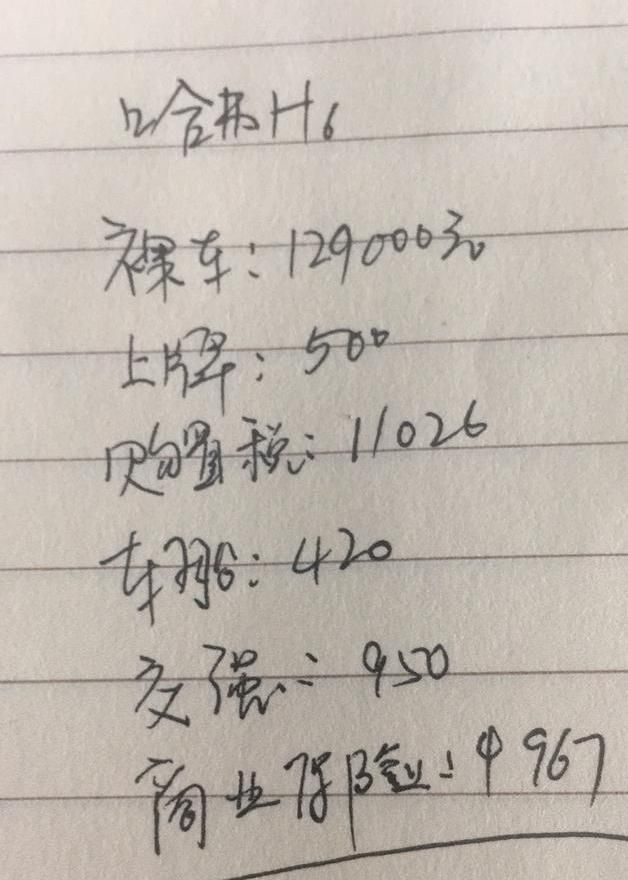 哈弗H6
裸车：129000元
上牌：500
购置税：11026
车船：420
交强：950
商业保险：4967